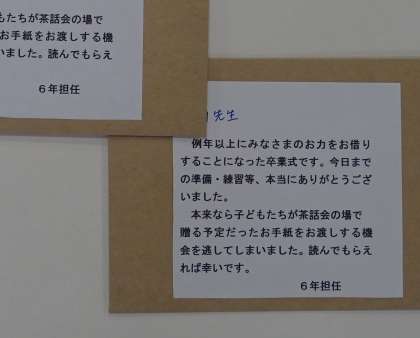 もたちが茶話会の場で
お手紙をお渡しする機
いました。読んでもらえ
６年担任
先生
例年以上にみなさまのお力をお借り
することになった卒業式です。今日まで
の準備・練習等、本当にありがとうござ
いました。
本来なら子どもたちが茶話会の場で
贈る予定だったお手紙をお渡しする機
会を逃してしまいました。読んでもらえ
れば幸いです。
６年担任